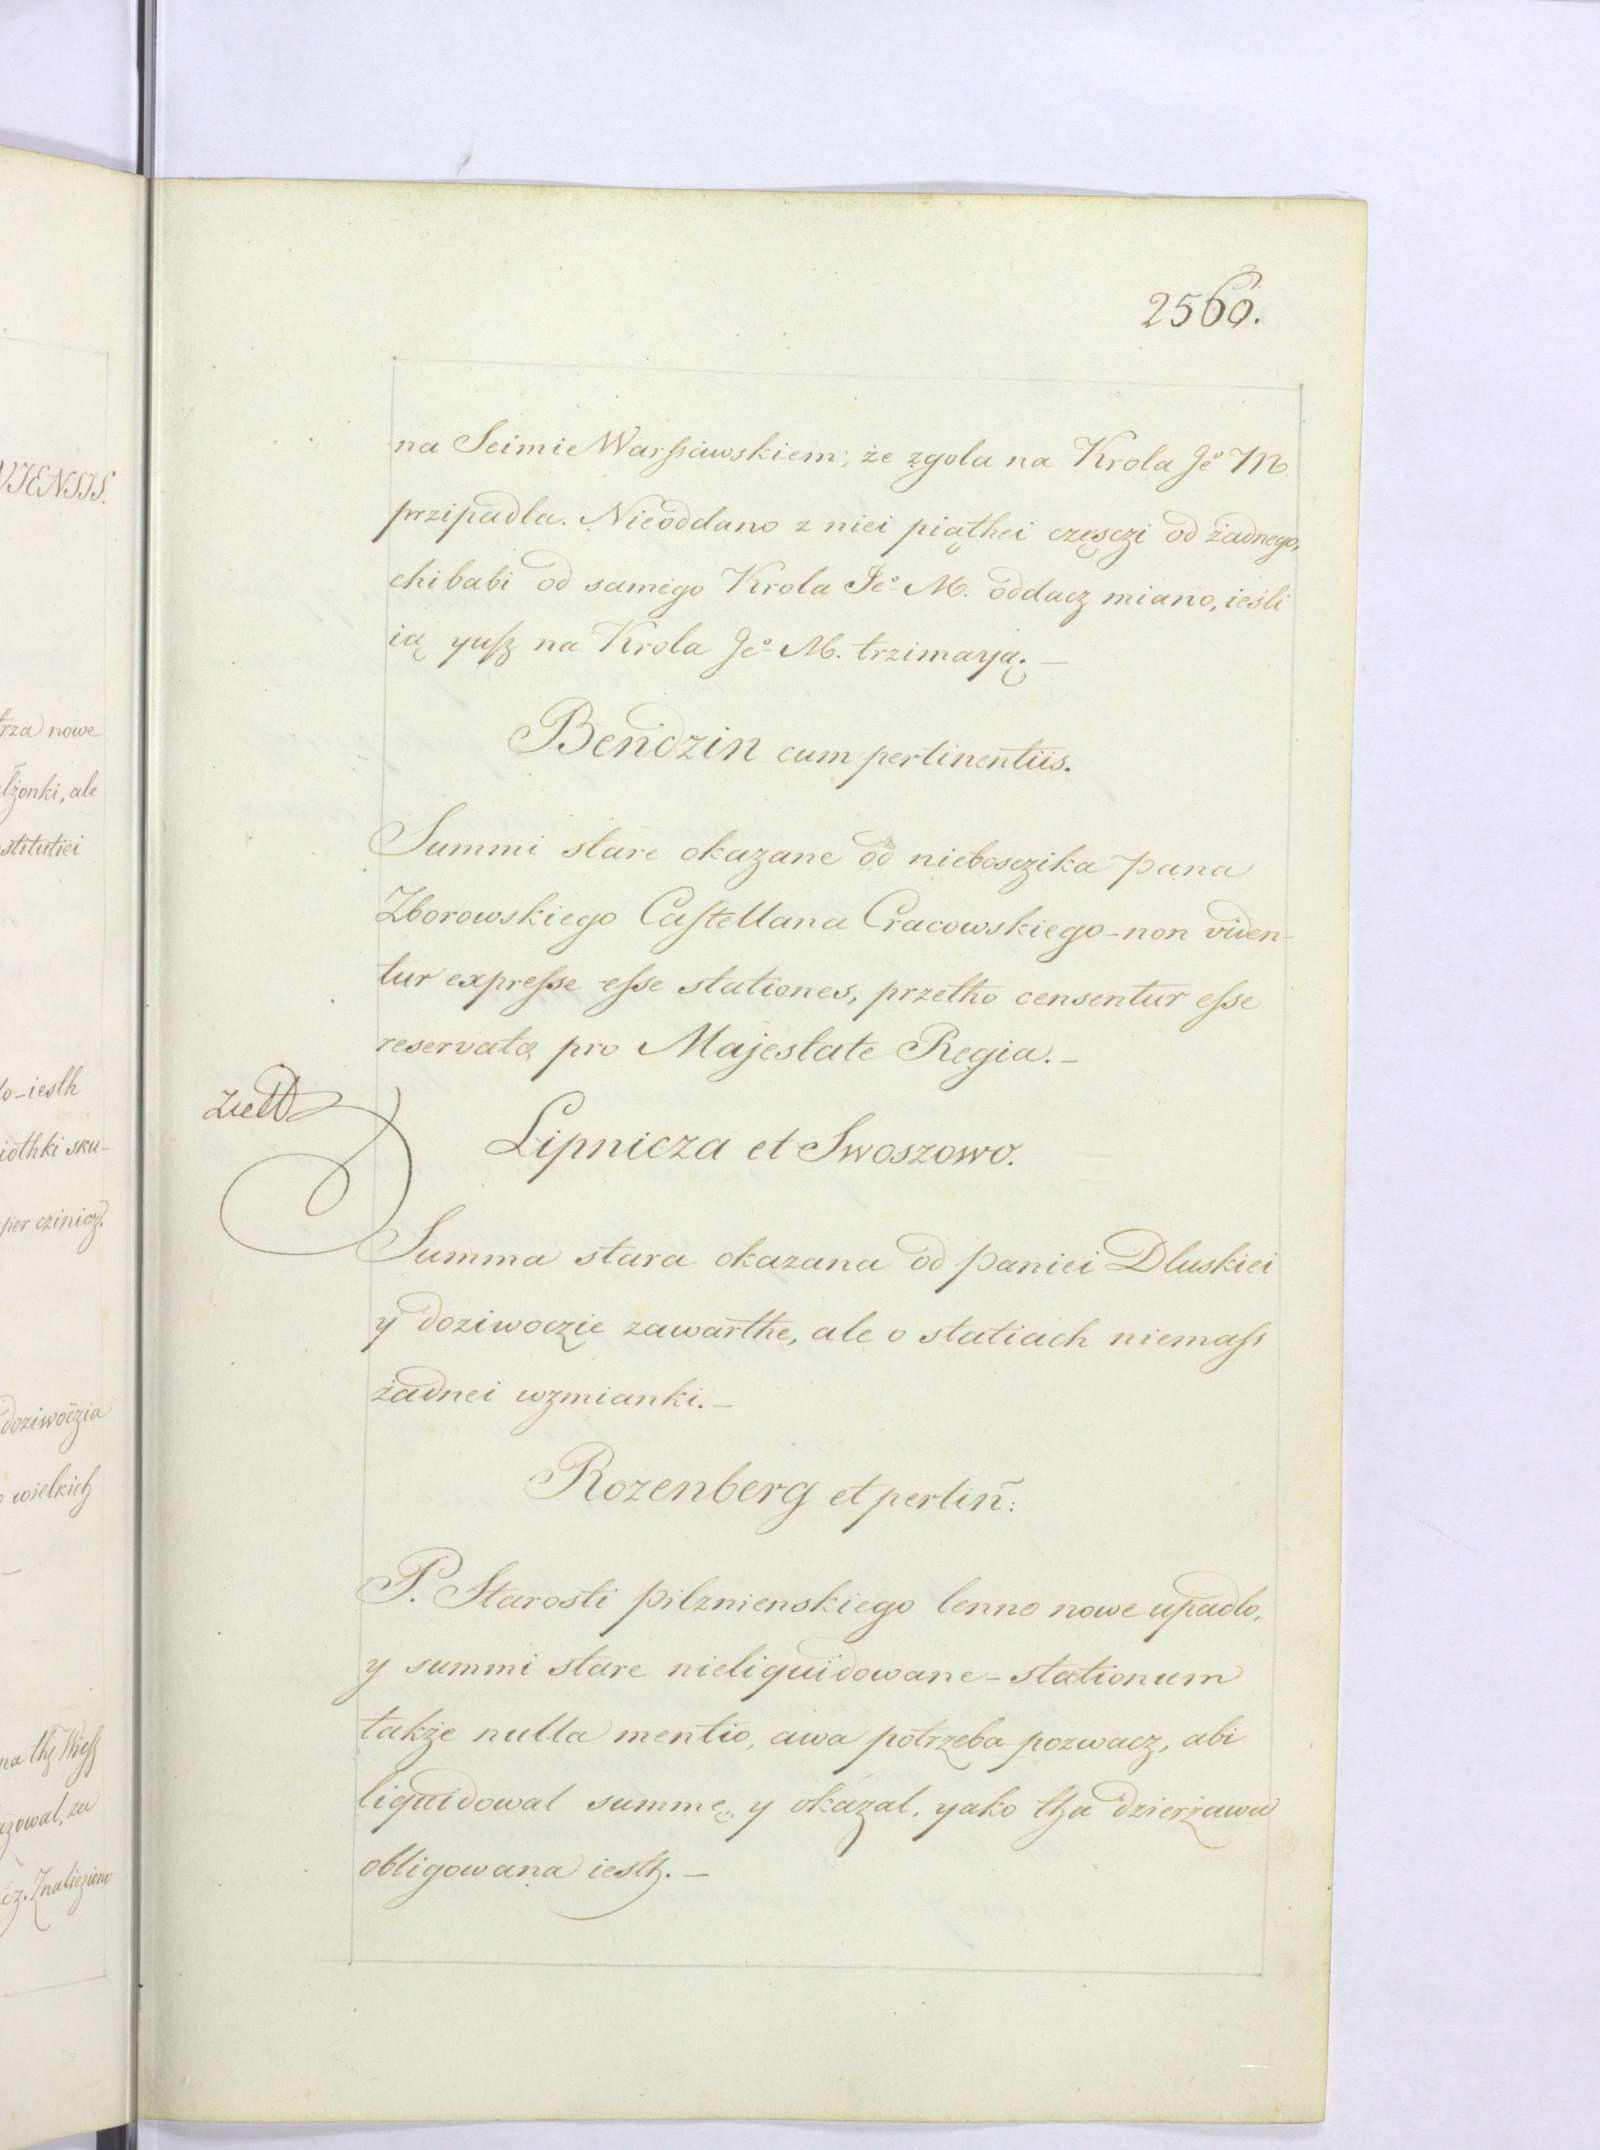 VIENSIS.
trza nowe
łżonki, ale
stitutiei
lo-iesth
iothki sku-
per czinicz.
doziwoczia
wielkich
na thę Wieſz
azowal, za
ecz. Znaliezieno
2560.
na Seimie Warſzawskiem, że zgola na Krola Je͞o M.
przipadla. Nieoddano z niei piąthei częsczi od żadnego,
chibabi od samego Krola Je͞o M. oddacz miano, ieśli
ią yuſz na Krola Je͞o M. trzimayą.—
Bendzin cum pertinentiis.
Summi stare okazane od nieboszczika pana
Zborowskiego Caſtellana Cracowskiego-non viden-
tur expreſse eſse stationes, przetho censentur eſse
reservatæ pro Majestate Regia.—
Lipnicza et Swoszowo.
Summa stara okazana od paniei Dluskiei
y doziwoczie zawarthe, ale o statiach niemaſs
żadnei wzmianki.—
Rozenberg et pertiñ:
P. Starosti pilznienskiego lenno nowe upadlo,
y summi stare nieliquidowane-stationum
także nulla mentio, awa potrzeba pozwacz, abi
liquidowal summę, y okazal, yako tha dzierżawa
obligowana iesth.—